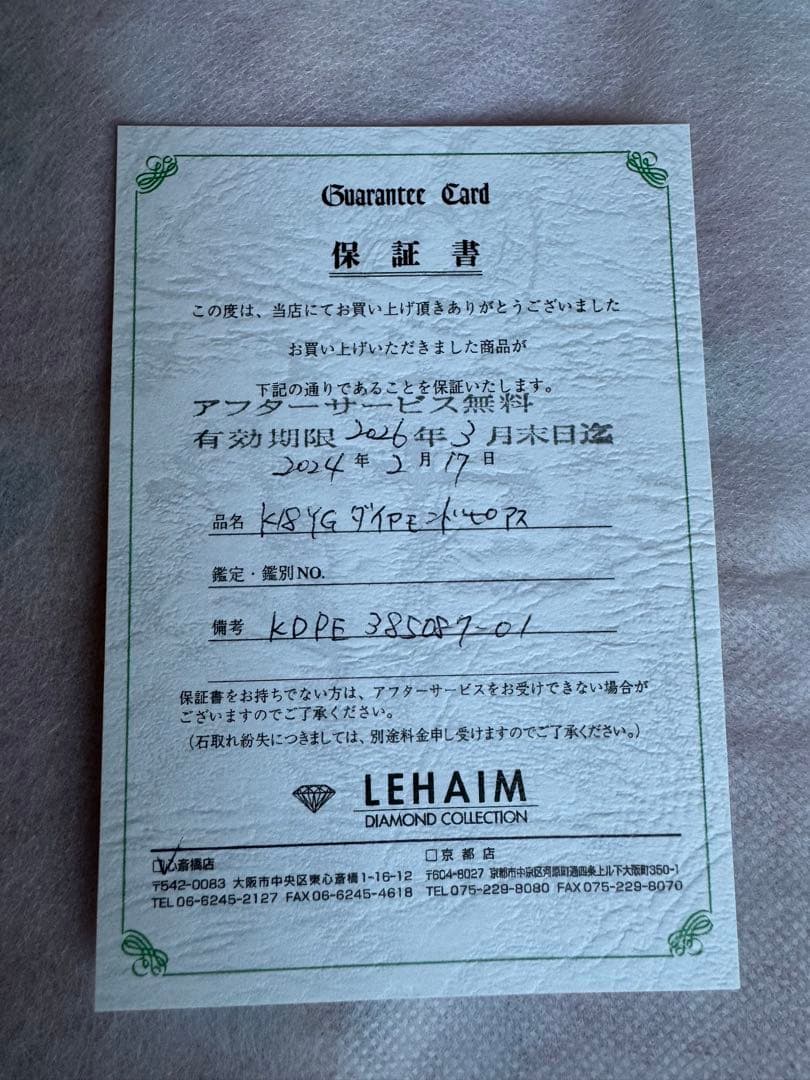 Guarantee Card
保証書
この度は、当店にてお買い上げ頂きありがとうございました
お買い上げいただきました商品が
下記の通りであることを保証いたします。
アフターサービス無料
有効期限 2026年 3月末日迄
2024年 2月 17日
品名 K18YG ダイアモンドピアス
鑑定・鑑別NO.
備考 KDPE 385087-01
保証書をお持ちでない方は、アフターサービスをお受けできない場合が
ございますのでご了承ください。
(石取れ紛失につきましては、別途料金申し受けますのでご了承ください。)
LEHAIM
DIAMOND COLLECTION
☑心斎橋店
〒542-0083 大阪市中央区東心斎橋1-16-12
TEL 06-6245-2127 FAX 06-6245-4618
□京都店
〒604-8027 京都市中京区河原町通四条上ル下大阪町350-1
TEL 075-229-8080 FAX 075-229-8070